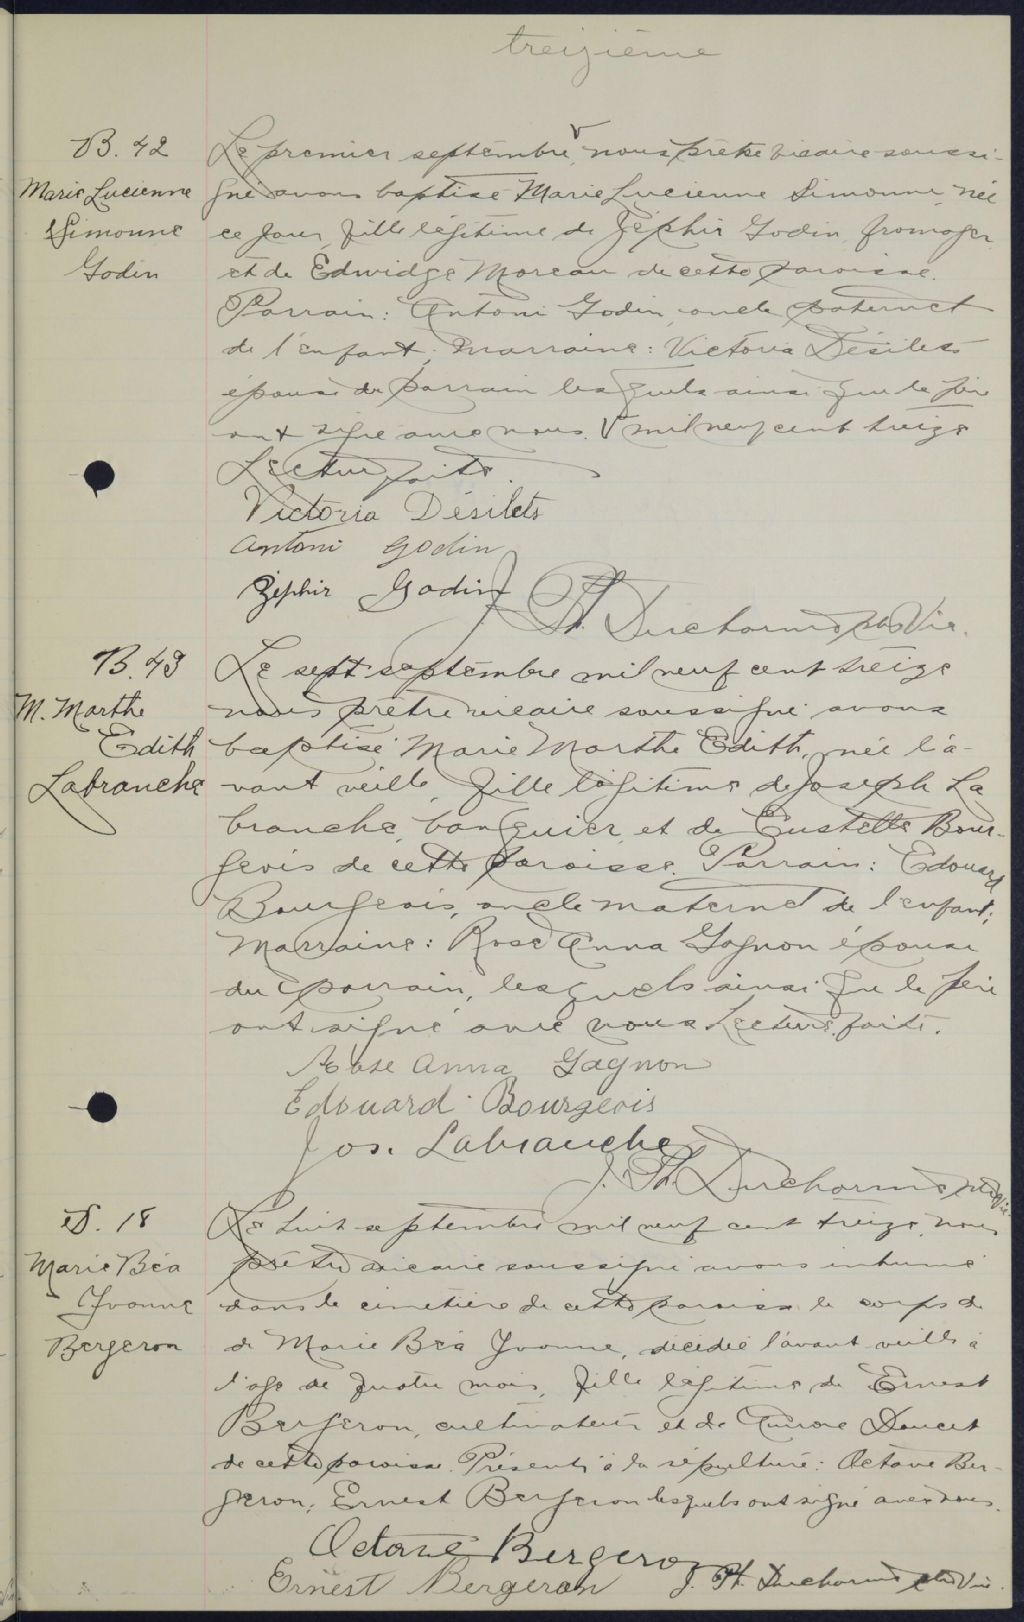 treizième
B. 42
Marie Lucienne
Simonne
Godin
Le premier septembre, √ nous prêtre vicaire soussi-
gné avons baptisé Marie Lucienne Simonne, née
ce jour, fille légitime de Zéphir Godin, fromager
et de Edwidge Moreau de cette paroisse.
Parrain: Antoni Godin, oncle paternel
de l'enfant; Marraine: Victoria Désilets
épouse du parrain lesquels ainsi que le père
ont signé avec nous. √ mil neuf cent treize
Lecture faite.
Victoria Désilets
Antoni Godin
Zéphir Godin
J. Th. Ducharme ptre Vic.
B. 43
M. Marthe
Edith
Labranche
Le sept septembre mil neuf cent treize
nous prêtre vicaire soussigné avons
baptisé Marie Marthe Edith, née l'a-
vant veille, fille légitime de Joseph La
branche, banquier, et de Eustelle Bour-
geois de cette paroisse. Parrain: Edouard
Bourgeois, oncle maternel de l'enfant;
Marraine: Rose Anna Gagnon épouse
du parrain, lesquels ainsi que le père
ont signé avec nous Lecture faite.
Rose Anna Gagnon
Edouard Bourgeois
Jos. Labranche
J. Th. Ducharme ptre Vic.
S. 18
Marie Béa
Yvonne
Bergeron
Le huit septembre mil neuf cent treize, nous
prêtre vicaire soussigné avons inhumé
dans le cimetière de cette paroisse le corps de
de Marie Béa Yvonne, décédée l'avant veille à
l'age de quatre mois, fille légitime de Ernest
Bergeron, cultivateur et de Aurore Doucet
de cette paroisse. Présents à la sépulture: Octave Ber-
geron; Ernest Bergeron lesquels ont signé avec nous.
Octave Bergeron
Ernest Bergeron
J. Th. Ducharme ptre Vic.